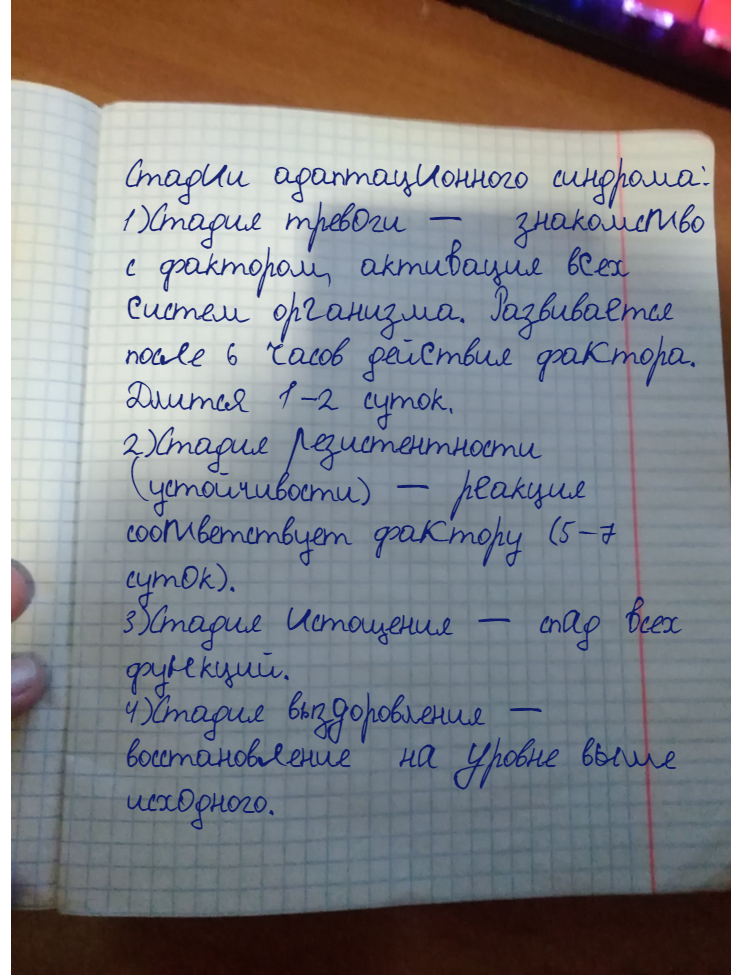 Стадии адаптационного синдрома:
1) Стадия тревоги — знакомство
с фактором, активация всех
систем организма. Развивается
после 6 часов действия фактора.
Длится 1-2 суток.
2) Стадия резистентности
(устойчивости) — реакция
соответствует фактору (5-7
суток).
3) Стадия истощения — спад всех
функций.
4) Стадия выздоровления —
восстановление на уровне выше
исходного.